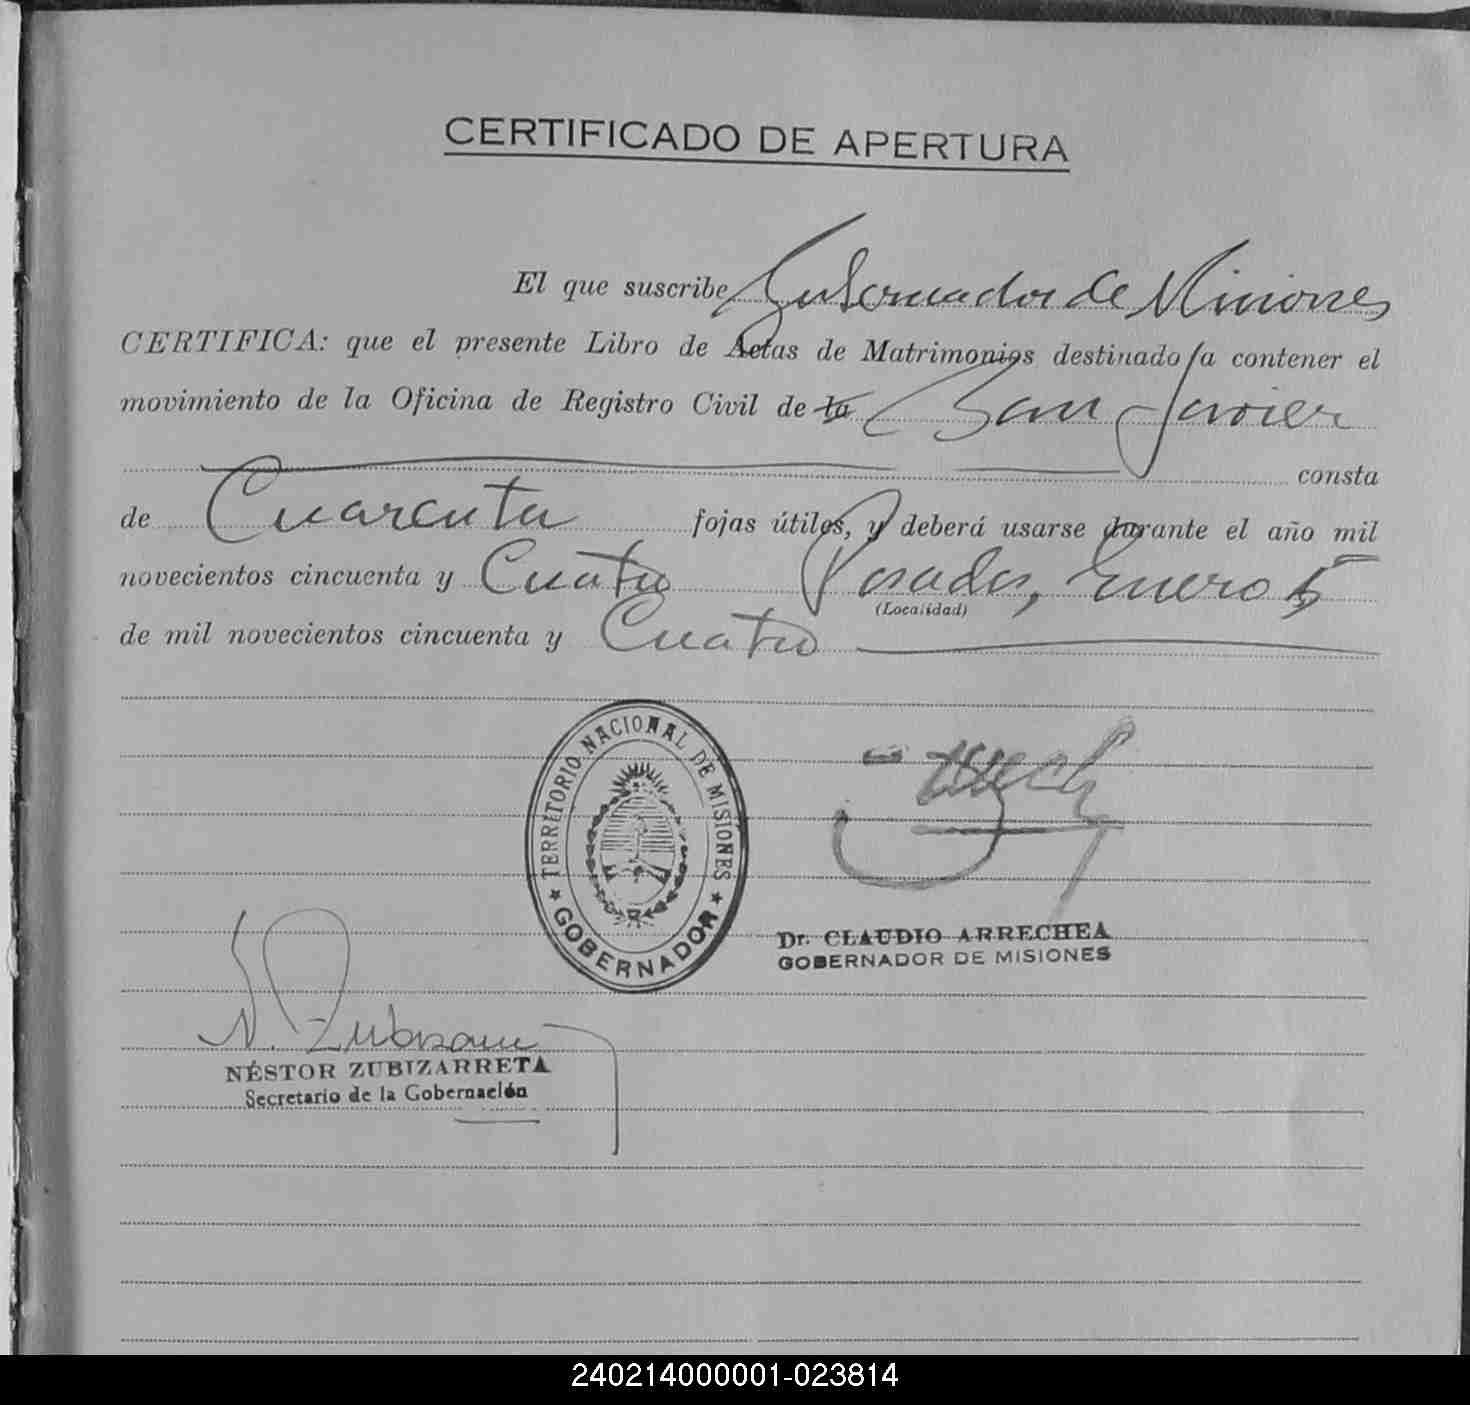 CERTIFICADO DE APERTURA
El que suscribe Gobernador de Misiones
CERTIFICA: que el presente Libro de Actas de Matrimonios destinado a contener el
movimiento de la Oficina de Registro Civil de la San Javier
consta
de Cuarenta fojas útiles, y deberá usarse durante el año mil
novecientos cincuenta y Cuatro Posadas, Enero 5
(Localidad)
de mil novecientos cincuenta y Cuatro
TERRITORIO NACIONAL DE MISIONES
GOBERNADOR
Dr. CLAUDIO ARRECHEA
GOBERNADOR DE MISIONES
NÉSTOR ZUBIZARRETA
Secretario de la Gobernación
240214000001-023814